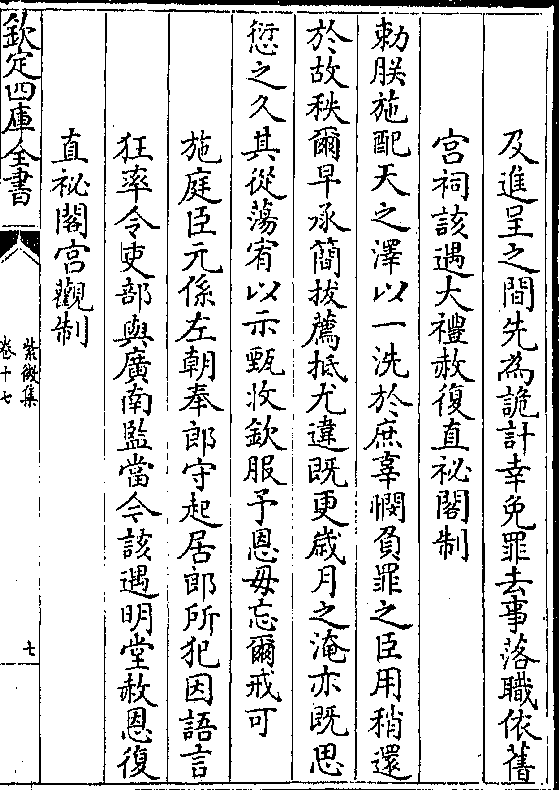 及進呈之間先為詭計幸免罪去事落職依舊
宮祠該遇大禮赦復直祕閣制
勅朕施配天之澤以一洗於庶辜憫負罪之臣用稍還
於故秩爾早承簡拔薦抵尤違既更歲月之淹亦既思
愆之久其從蕩宥以示甄收欽服予恩毋忘爾戒可
施庭臣元係左朝奉郎守起居郎所犯因語言
狂率令吏部與廣南監當今該遇明堂赦恩復
直祕閣宮觀制
欽定四庫全書
紫微集
卷十七
七